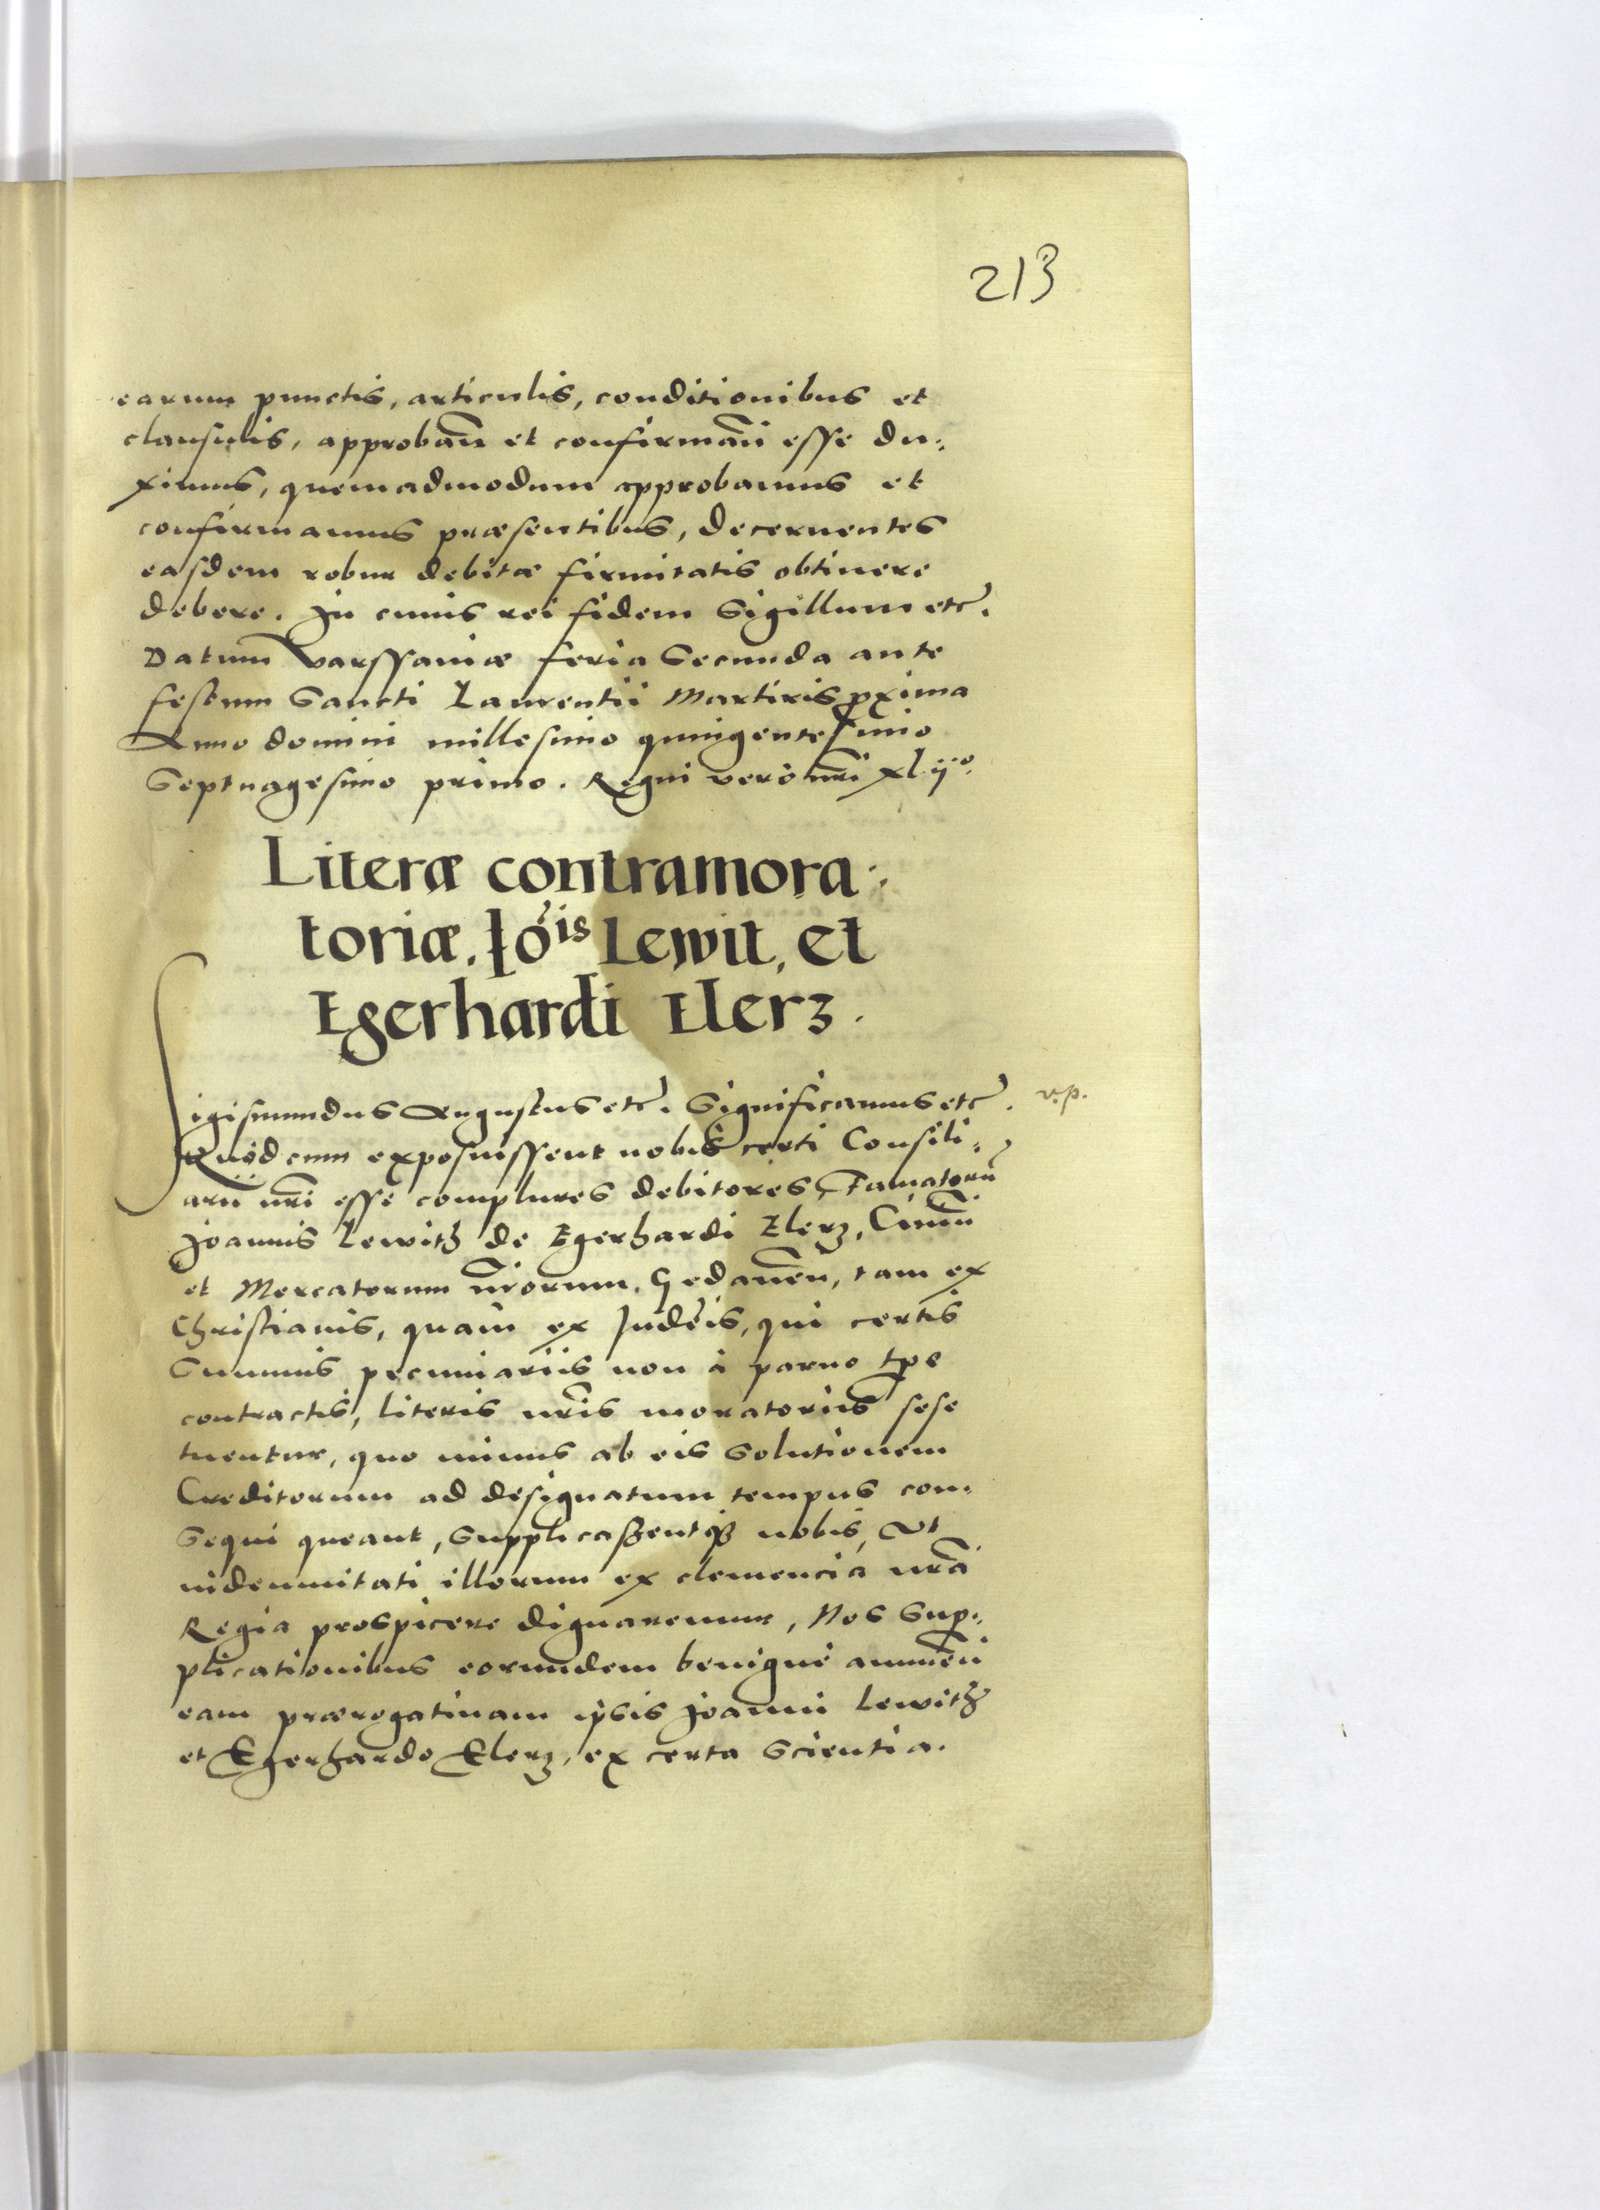 213
earum punctis, articulis, conditionibus et
clausulis, approban̄ et confirman̄ esse du:
ximus, quemadmodum approbamus et
confirmamus præsentibus, decernentes
easdem robur debitæ firmitatis obtinere
debere. In cuius rei fidem Sigillum etc̃.
Datum Varssaviæ feria Secunda ante
festum Sancti Laurentii Martiris ꝓxima
Anno domini millesimo quingentesimo
Septuagesimo primo. Regni vero nr̃i xlijº.
Literæ contramora:
toriæ, Iois Lewit, et
Egerhardi Elerz.
Sigismundus Augustus etc̃. Significamus etc̃. v.p.
Quòd cum exposuissent nobis certi Consili:
arii nr̃i esse complures debitores Famatorũ
Joannis Lewitz de Egerhardi Elerz, Civiũ
et Mercatorum nr̃orum, Gedanen̄, tam ex
Christianis, quàm ex Judeis, qui certis
Summis pecuniariis non à parvo tp̃e
contractis, literis nr̃is moratoriis sese
tuentur, quo minus ab eis Solutionem
Creditorum ad designatum tempus con:
Sequi queant, Supplicassentqꝫ nobis, Ut
indemnitati illorum ex clemenciá nr̃á
Regia prospicere dignaremur, Nos Sup:
plicationibus eorundem benignè annuen̄
eam prærogativam ipsis Joanni Lewitz
et Egerhardo Elerz, ex certa Scientia.